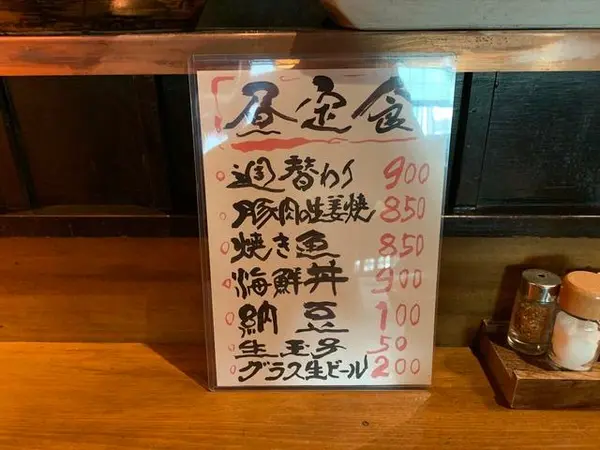 昼定食
週替わり 900
豚肉の生姜焼 850
焼き魚 850
海鮮丼 900
納豆 100
生玉子 50
グラス生ビール 200